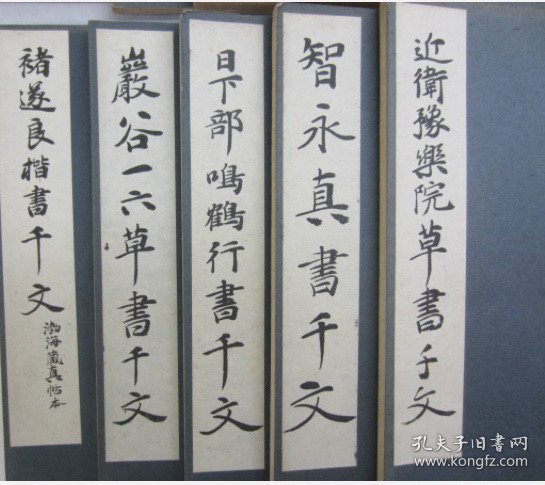 近衛豫樂院草書千文
智永真書千文
日下部鳴鶴行書千文
巖谷一六草書千文
褚遂良楷書千文
渤海藏真帖本
孔夫子旧书网
www.kongfz.com